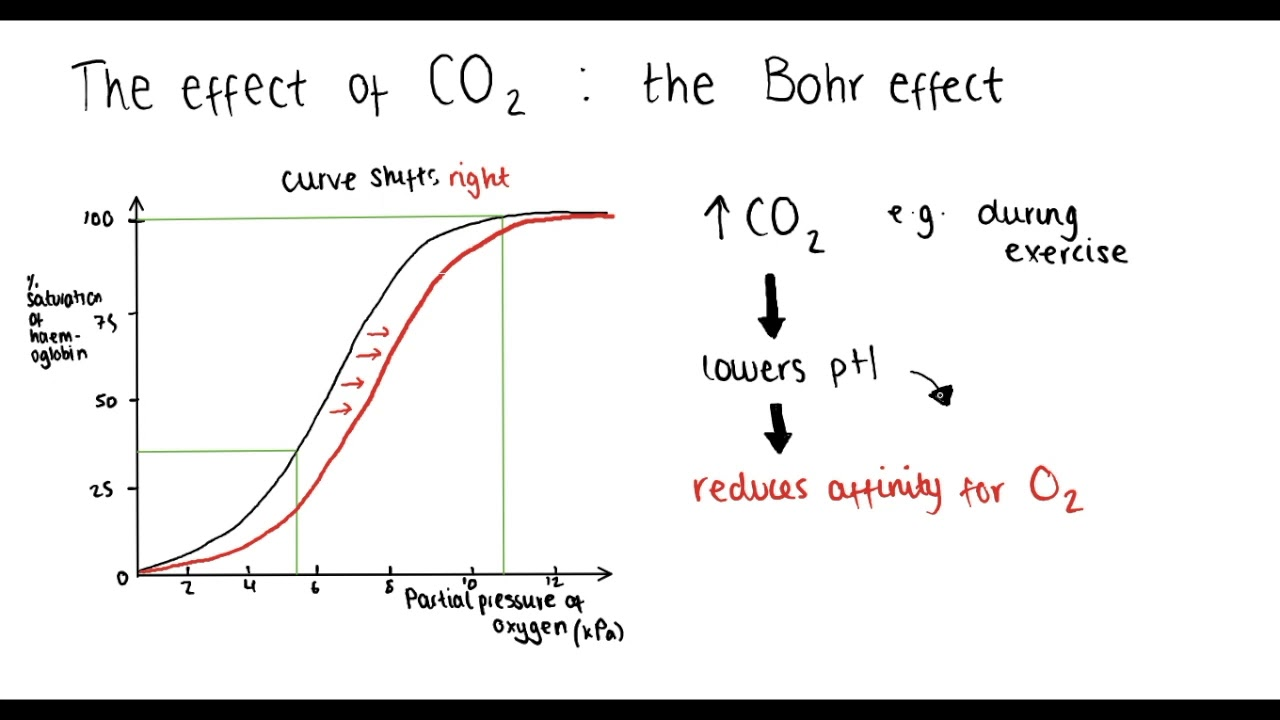 The effect of CO₂ : the Bohr effect
curve shifts right
100
75
50
25
0
%
saturation
of
haem-
oglobin
2 4 6 8 10 12
Partial pressure of
oxygen (kPa)
↑ CO₂ e.g. during
exercise
lowers pH
reduces affinity for O₂